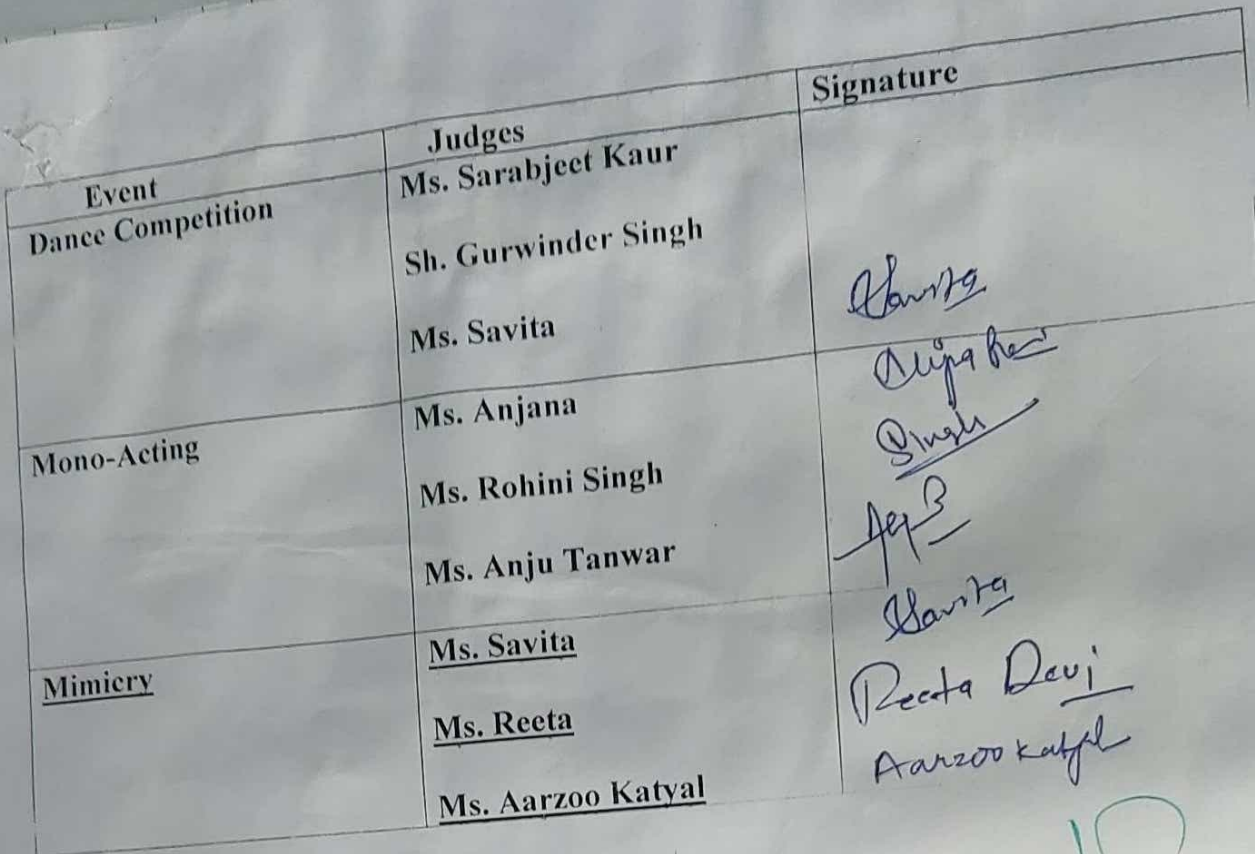 Event Judges Signature
Dance Competition Ms. Sarabjeet Kaur
Sh. Gurwinder Singh
Ms. Savita Savita
Mono-Acting Ms. Anjana
Ms. Rohini Singh Singh
Ms. Anju Tanwar
Mimicry Ms. Savita Savita
Ms. Reeta Reeta Devi
Ms. Aarzoo Katyal Aarzoo Katyal